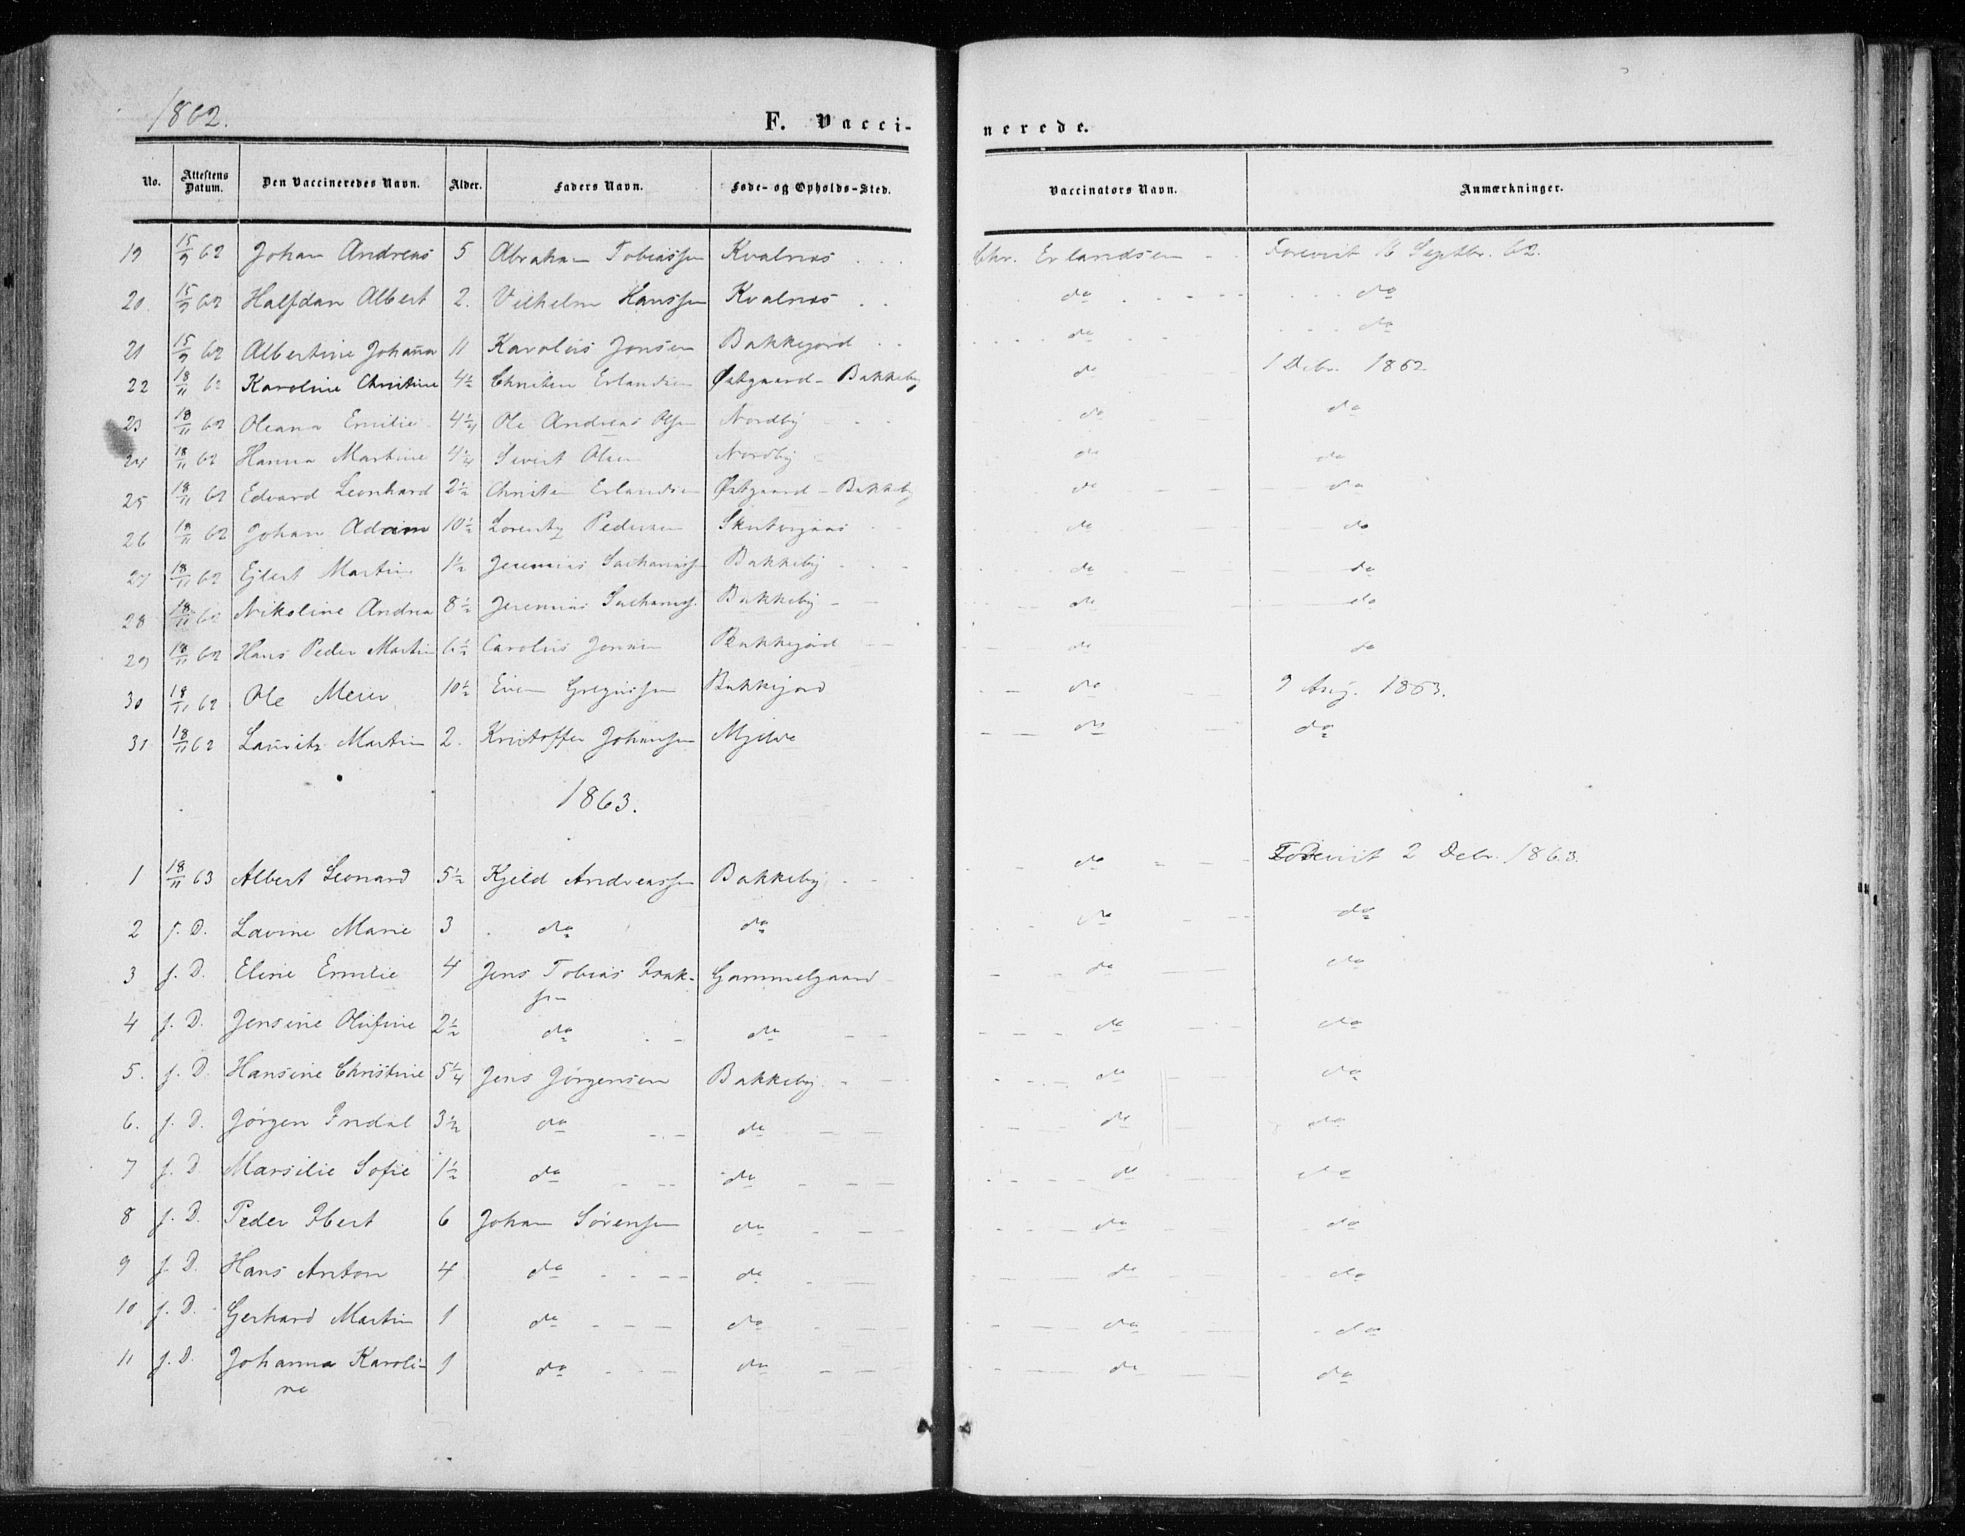 1862.
F. Vacci-
nerede.
No. Attestens Datum. Den Vaccineredes Navn. Alder. Faders Navn. Føde- og Opholds-Sted. Vaccinators Navn. Anmærkninger.
19 15/9 62 Johan Andreas 5 Abraham Tobiassen Kvalnæs Chr. Erlandsen Forevist 16 Septbr. 62.
20 15/9 62 Halfdan Albert 2. Vilhelm Hanssen Kvalnæs do do
21 15/9 62 Albertine Johanna 11 Karolus Jonsen Bakkejord do do
22 18/11 62 Karoline Christine 4½ Christen Erlandsen Østgaard - Bakkeby do 1 Debr. 1862.
23 18/11 62 Oleana Emilie 4¼ Ole Andreas Olsen Nordby do do
24 18/11 62 Hanna Martine 4¼ Sivert Olsen Nordby do do
25 18/11 62 Edvard Leonhard 2½ Christen Erlandsen Østgaard - Bakkeby do do
26 18/11 62 Johan 10½ Lorentz Pedersen do do
27 18/11 62 Ejlert Martin 1½ Jeremias Bakkeby do do
28 18/11 62 Nikoline Andrea 8½ Jeremias Bakkeby do do
29 18/11 62 Hans Peder Martin 6½ Carolus Jonsen Bakkejord do do
30 18/11 62 Ole Meier 10½ Even Gregussen Bakkejord do 9 Aug. 1863.
31 18/11 62 Lauritz Martin 2. Kristoffer Johansen Mjelde do do
1863.
1 18/11 63 Albert Leonard 5½ Kjeld Andreassen Bakkeby do Forevist 2 Debr. 1863.
2 s. D. Lavine Marie 3 do do do do
3 s. D. Eline Emilie 4 Jens Tobias Isak- Gammelgaard do do
sen
4 s. D. Jensine Olufine 2½ do do do do
5. s. D. Hansine Christine 5¼ Jens Jørgensen Bakkeby do do
6. s. D. Jørgen Indal 3½ do do do do
7 s. D. Marsilie Sofie 1½ do do do do
8 s. D. Peder Ebert 6 Johan Sørensen do do do
9 s. D. Hans Anton 4 do do do do
10 s. D. Gerhard Martin 1 do do do do
11 s. D. Johanna Karoli- 1 do do do do
ne